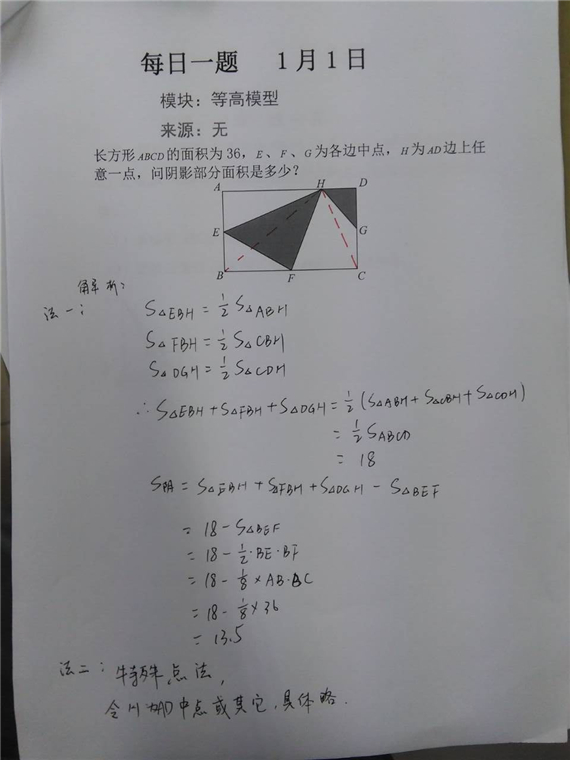 每日一题 1月1日
模块：等高模型
来源：无
长方形ABCD的面积为36，E、F、G为各边中点，H为AD边上任
意一点，问阴影部分面积是多少？
A H D
E G
B F C
解析：
法一：S△EBH = 1/2 S△ABH
S△FBH = 1/2 S△CBH
S△DGH = 1/2 S△CDH
∴ S△EBH + S△FBH + S△DGH = 1/2 (S△ABH + S△CBH + S△CDH)
= 1/2 SABCD
= 18
S阴 = S△EBH + S△FBH + S△DGH - S△BEF
= 18 - S△BEF
= 18 - 1/2·BE·BF
= 18 - 1/8 × AB·BC
= 18 - 1/8 × 36
= 13.5
法二：特殊点法，
令H为AD中点或其它，具体略.